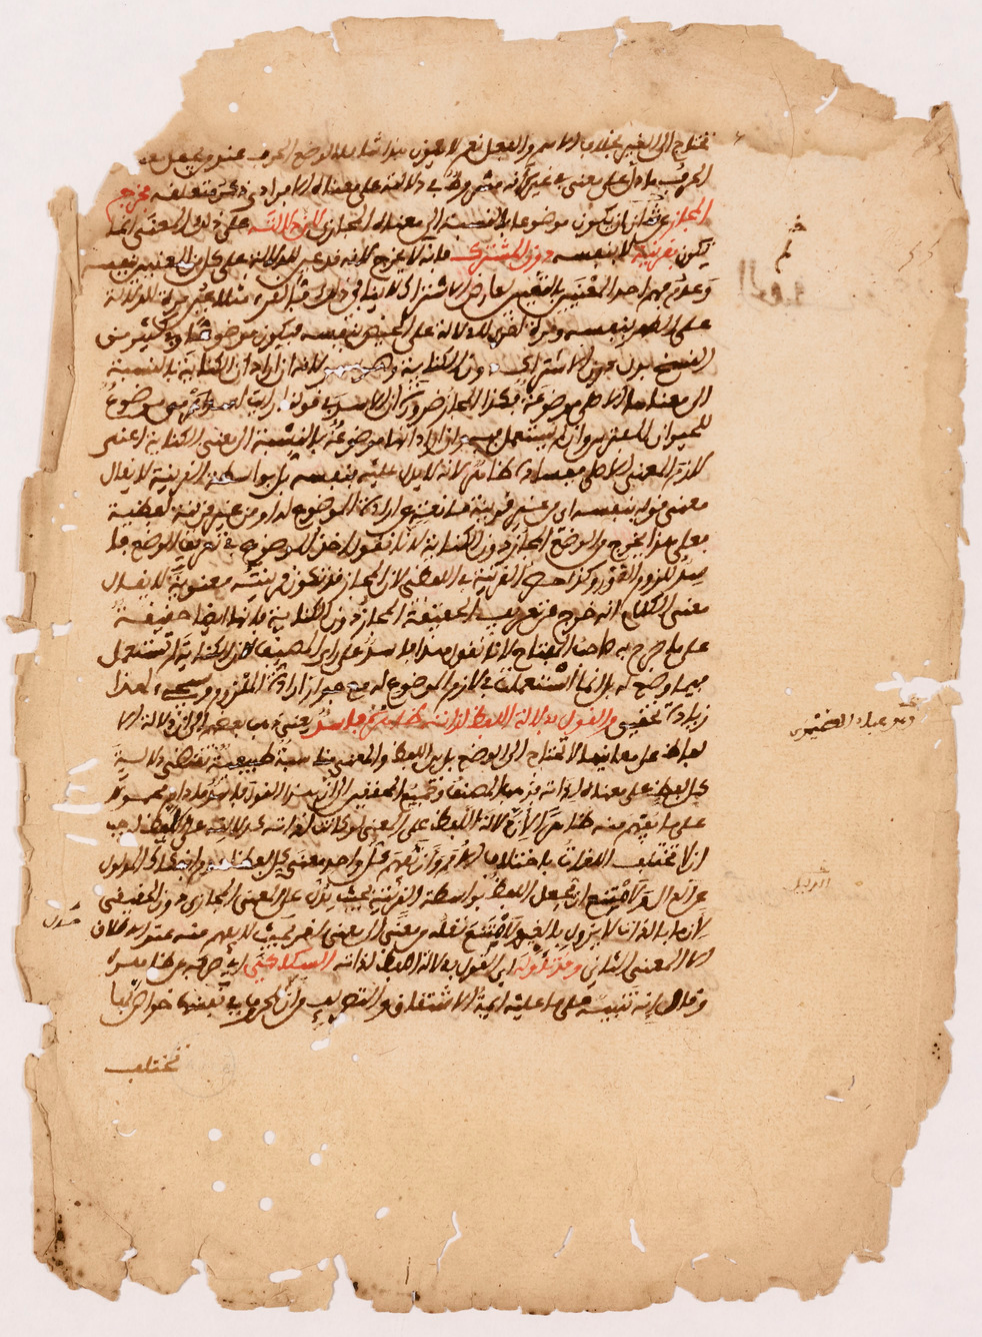 يحتاج الى الغير بخلاف الاسم والفعل نعم لا يكون هذا شاملا لوضع الحرف عند من يجعل
الحرف ما دل على معنى في غيره أنه مشروط في دلالته على معناه الافرادي ذكر متعلقه فخرج
المجاز عن أن يكون موضوعا بالنسبة الى معناه المجازي لان دلالته على ذلك المعنى انما
تكون بقرينة لا بنفسه دون المشترك فانه لا يخرج لانه قد عين للدلالة على كل من المعنيين بنفسه
وعدم فهم احد المعنيين بالتعيين لعارض الاشتراك لا ينافي ذلك فالقرء مثلا عين مرة للدلالة
على الطهر بنفسه ومرة اخرى للدلالة على الحيض بنفسه فيكون موضوعا وفي كثير من
النسخ بدل دون الاشتراك دون الكناية وهو سهو لانه ان اراد ان الكناية بالنسبة
الى معناها الاصلي موضوعة فكذا المجاز ضرورة ان الاسد في قولنا رأيت اسدا يرمي موضوع
للحيوان المفترس وان لم يستعمل فيه وان اراد انها موضوعة بالنسبة الى معنى الكناية اعني
لازم المعنى الاصلي ففساده ظاهر لانه لا يدل عليه بنفسه بل بواسطة القرينة لا يقال
معنى قوله بنفسه اي من غير قرينة مانعة عن ارادة الموضوع له او من غير قرينة لفظية
فعلى هذا يخرج من الوضع المجاز دون الكناية لانا نقول اخذ الموضوع في تعريف الوضع فا
سد للزوم الدور وكذا حصر القرينة في اللفظي لان المجاز قد تكون قرينته معنوية لا يقال
معنى الكلام انه خرج عن تعريف الحقيقة المجاز دون الكناية فانها ايضا حقيقة
على ما صرح به صاحب المفتاح لانا نقول هذا فاسد على راي المصنف لان الكناية لم تستعمل
فيما وضع له بل انما استعملت في لازم الموضوع له مع جواز ارادة الملزوم وسيجيء لهذا
زيادة تحقيق والقول بدلالة اللفظ لذاته ظاهره فاسد يعني ذهب بعضهم الى ان دلالة الا
لفاظ على معانيها لا تحتاج الى الوضع بل بين اللفظ والمعنى مناسبة طبيعية تقتضي دلالة
كل لفظ على معناه لذاته فذهب المصنف وجميع المحققين الى ان هذا القول فاسد ما دام محمولا
على ما يفهم منه ظاهرا لان دلالة اللفظ على المعنى لو كانت لذاته كدلالته على اللافظ لوجب
ان لا تختلف اللغات باختلاف الامم وان يفهم كل واحد معنى كل لفظ لعدم انفكاك المدلول
عن الدال ولامتنع ان يجعل اللفظ بواسطة القرينة بحيث يدل على المعنى المجازي دون الحقيقي
لان ما بالذات لا يزول بالغير ولامتنع نقله من معنى الى معنى اخر بحيث لا يفهم منه عند الاطلاق
الا المعنى الثاني وقد تاوله اي القول بدلالة اللفظ لذاته السكاكي اي صرفه عن ظاهره
وقال انه تنبيه على ما عليه ايمة الاشتقاق والتصريف من ان للحروف في نفسها خواص بها
تختلف
وهو عباد الضيمري